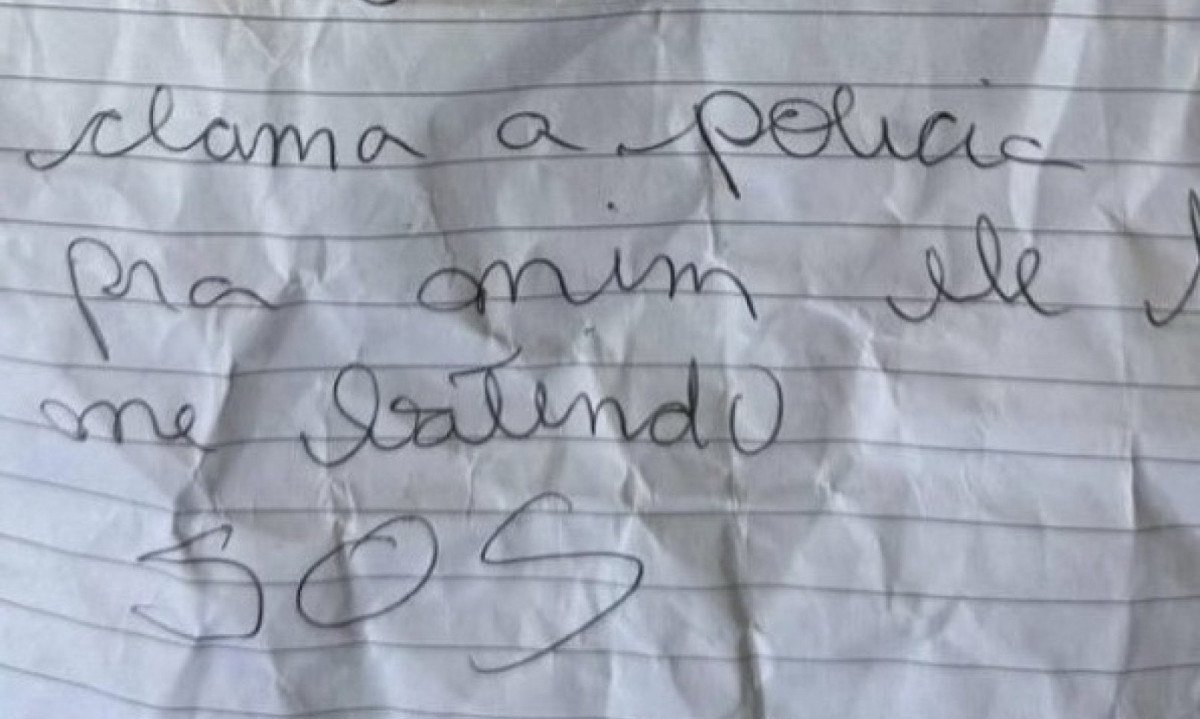 clama a policia
pra mim ele
me batendo
SOS